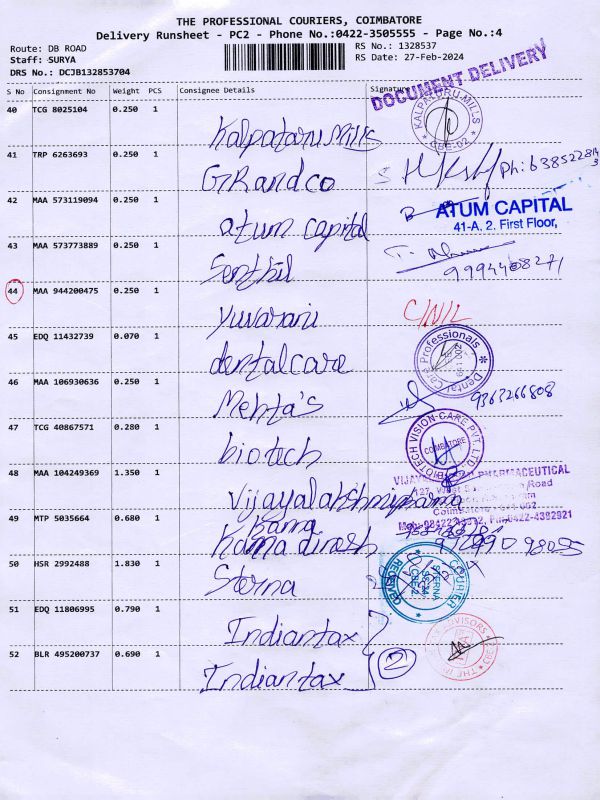 THE PROFESSIONAL COURIERS, COIMBATORE
Delivery Runsheet - PC2 - Phone No.:0422-3505555 - Page No.:4
Route: DB ROAD
Staff: SURYA
DRS No.: DCJB132853704
RS No.: 1328537
RS Date: 27-Feb-2024
DOCUMENT DELIVERY
S No Consignment No Weight PCS Consignee Details Signature
40 TCG 8025104 0.250 1 Kalpataru Mills
KALPATARU MILLS CBE-02
41 TRP 6263693 0.250 1 GRandco
42 MAA 573119094 0.250 1 atum capital
ATUM CAPITAL
41-A, 2. First Floor,
43 MAA 573773889 0.250 1 Senthil 9994408271
44 MAA 944200475 0.250 1 yuvarani
45 EDQ 11432739 0.070 1 dentalcare
Dental Care Professionals
46 MAA 106930636 0.250 1 Mehta's 9363266808
47 TCG 40867571 0.280 1 biotech
BIOTECH VISION-CARE PVT. LTD.
COIMBATORE
48 MAA 104249369 1.350 1 Vijayalakshmipharma
PHARMACEUTICAL
Road
Coimbatore
49 MTP 5035664 0.680 1 Kama dinesh
Kama
50 HSR 2992488 1.830 1 Sterna
COURIER
STERNA
RECEIVED
51 EDQ 11806995 0.790 1 Indiantax
52 BLR 495200737 0.690 1 Indiantax
2